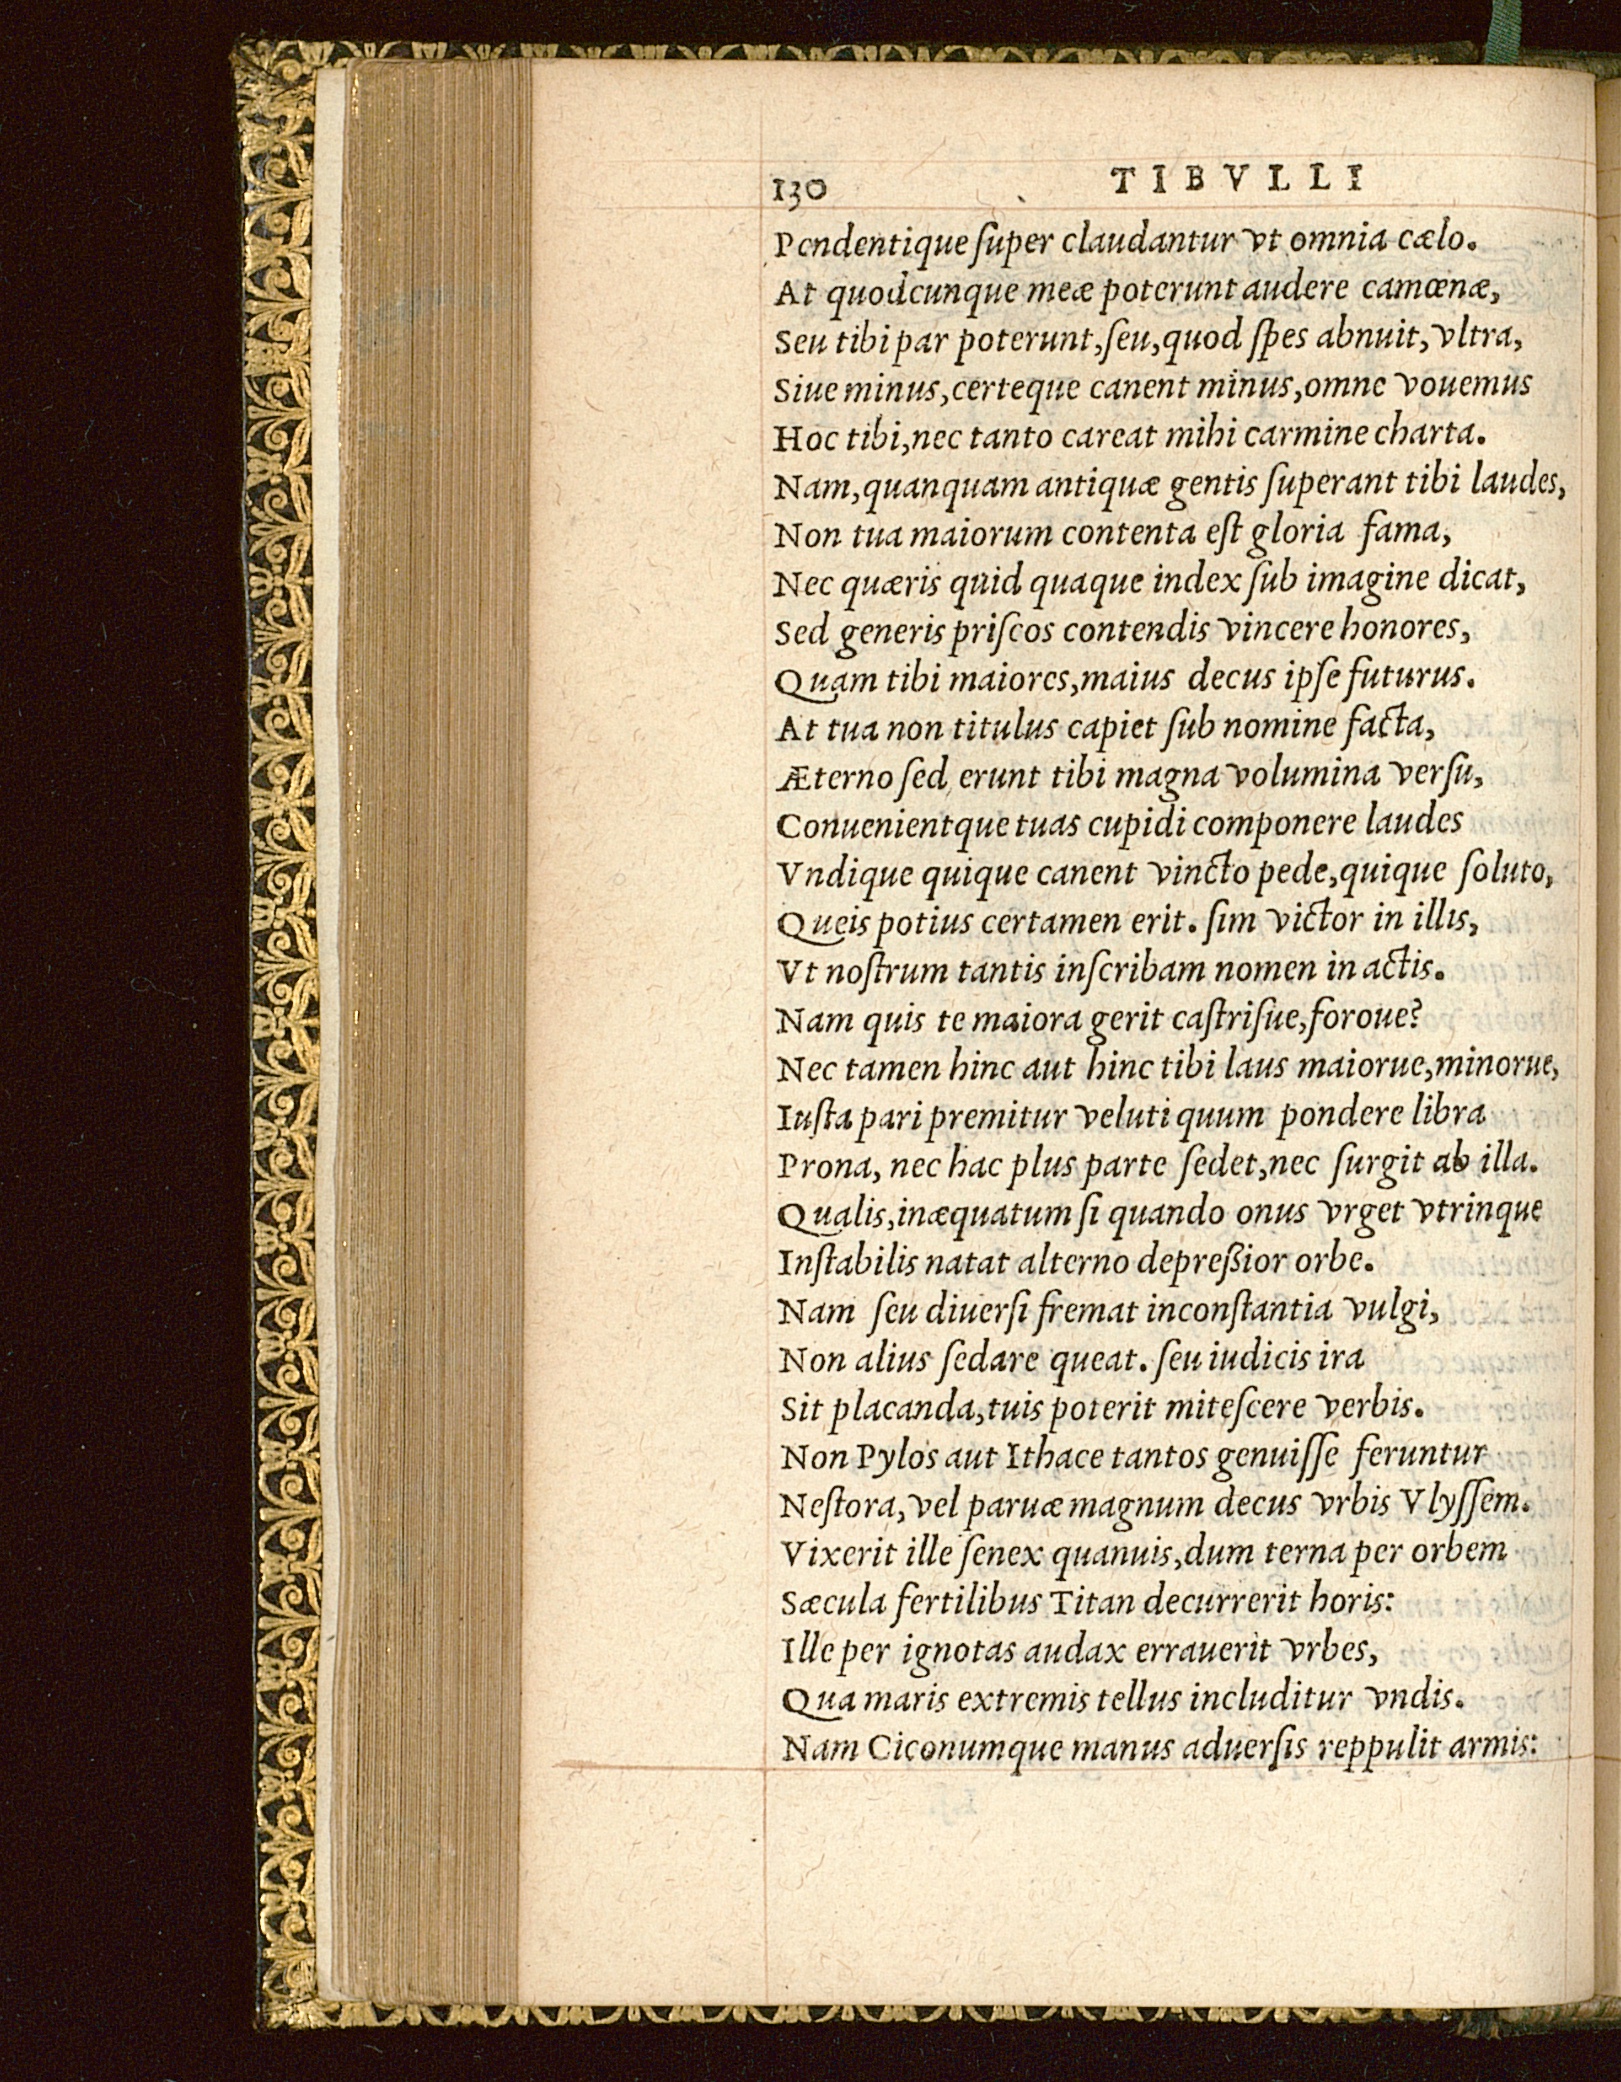 130 TIBVLLI
Pendentique ſuper claudantur vt omnia cælo.
At quodcunque meæ poterunt audere camœnæ,
Seu tibi par poterunt, ſeu, quod ſpes abnuit, vltra,
Siue minus, certeque canent minus, omne vouemus
Hoc tibi, nec tanto careat mihi carmine charta.
Nam, quanquam antiquæ gentis ſuperant tibi laudes,
Non tua maiorum contenta eſt gloria fama,
Nec quæris quid quaque index ſub imagine dicat,
Sed generis priſcos contendis vincere honores,
Quam tibi maiores, maius decus ipſe futurus.
At tua non titulus capiet ſub nomine facta,
Æterno ſed erunt tibi magna volumina verſu,
Conuenientque tuas cupidi componere laudes
Vndique quique canent vincto pede, quique ſoluto,
Queis potius certamen erit. ſim victor in illis,
Vt noſtrum tantis inſcribam nomen in actis.
Nam quis te maiora gerit caſtriſue, foroue?
Nec tamen hinc aut hinc tibi laus maiorue, minorue,
Iuſta pari premitur veluti quum pondere libra
Prona, nec hac plus parte ſedet, nec ſurgit ab illa.
Qualis, inæquatum ſi quando onus vrget vtrinque
Inſtabilis natat alterno depreßior orbe.
Nam ſeu diuerſi fremat inconſtantia vulgi,
Non alius ſedare queat. ſeu iudicis ira
Sit placanda, tuis poterit miteſcere verbis.
Non Pylos aut Ithace tantos genuiſſe feruntur
Neſtora, vel paruæ magnum decus vrbis Vlyſſem.
Vixerit ille ſenex quanuis, dum terna per orbem
Sæcula fertilibus Titan decurrerit horis:
Ille per ignotas audax errauerit vrbes,
Qua maris extremis tellus includitur vndis.
Nam Ciconumque manus aduerſis reppulit armis: